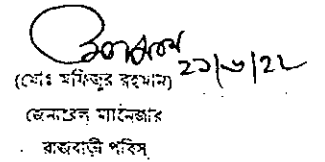 ২১/৬/২২
(মোঃ মফিজুর রহমান)
জেনারেল ম্যানেজার
রাজবাড়ী পবিস